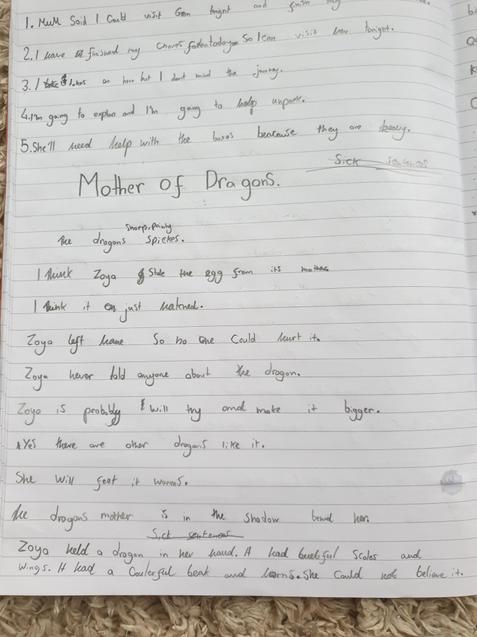 1. Mum Said I Could visit Gran tonight and finish my
2. I have finished my chores for today so I can visit her tonight.
3. I takes an hour but I don't mind the journey.
4. I'm going to explore and I'm going to help unpack.
5. She'll need help with the boxes beacause they are heavy.
Sick
Mother of Dragons.
Sharp, Pointy
The dragons spickes.
I think Zoya Stole the egg from its mother
I think it just hatched.
Zoya left home So no one Could hurt it.
Zoya never told anyone about the dragon.
Zoya is probably will try and make it bigger.
Yes there are other dragons like it.
She will feet it worms.
The dragons mother is in the Shadow behind her.
Sick sentences
Zoya held a dragon in her hand. It had beutiful Scales and
wings. It had a Coulerful beak and horns. She Could not believe it.